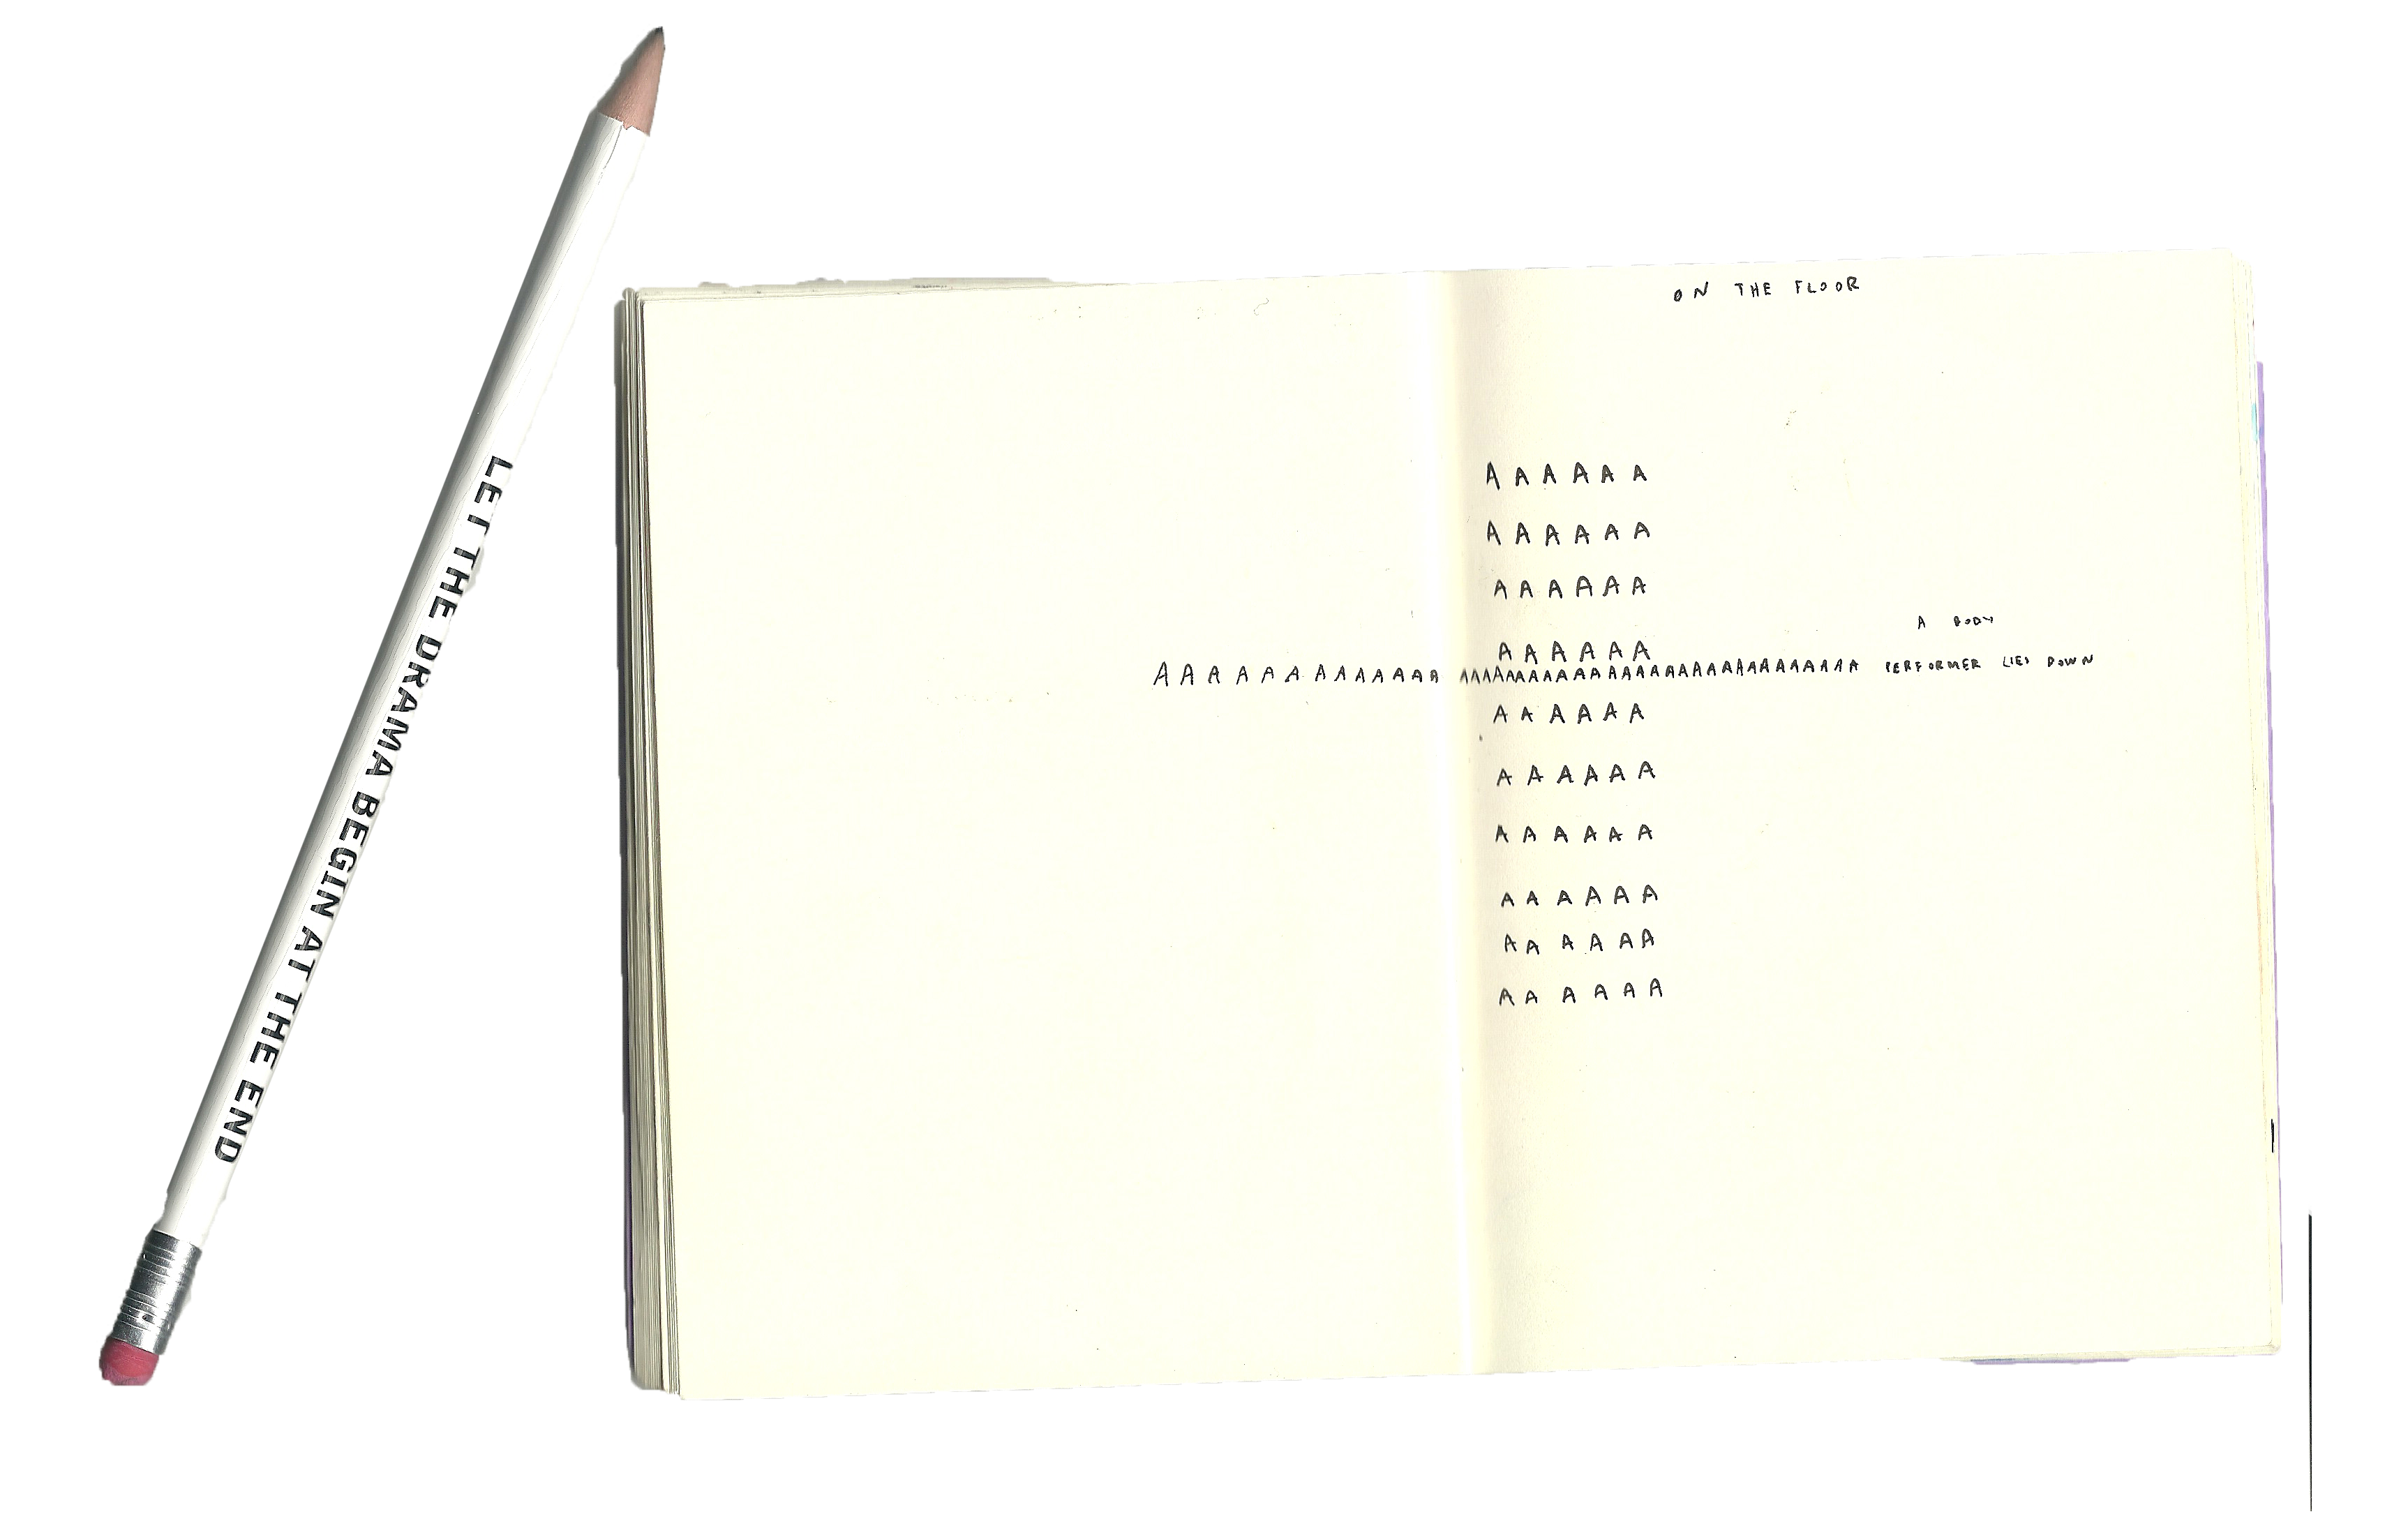 LET THE DRAMA BEGIN AT THE END
ON THE FLOOR
A A A A A A
A A A A A A
A A A A A A
A BODY
A A A A A A
A A A A A A A A A A A A A AAAAAAAAAAAAAAAAAAAAAAAAAAAAA PERFORMER LIES DOWN
A A A A A A
A A A A A A
A A A A A A
A A A A A A
A A A A A A
A A A A A A